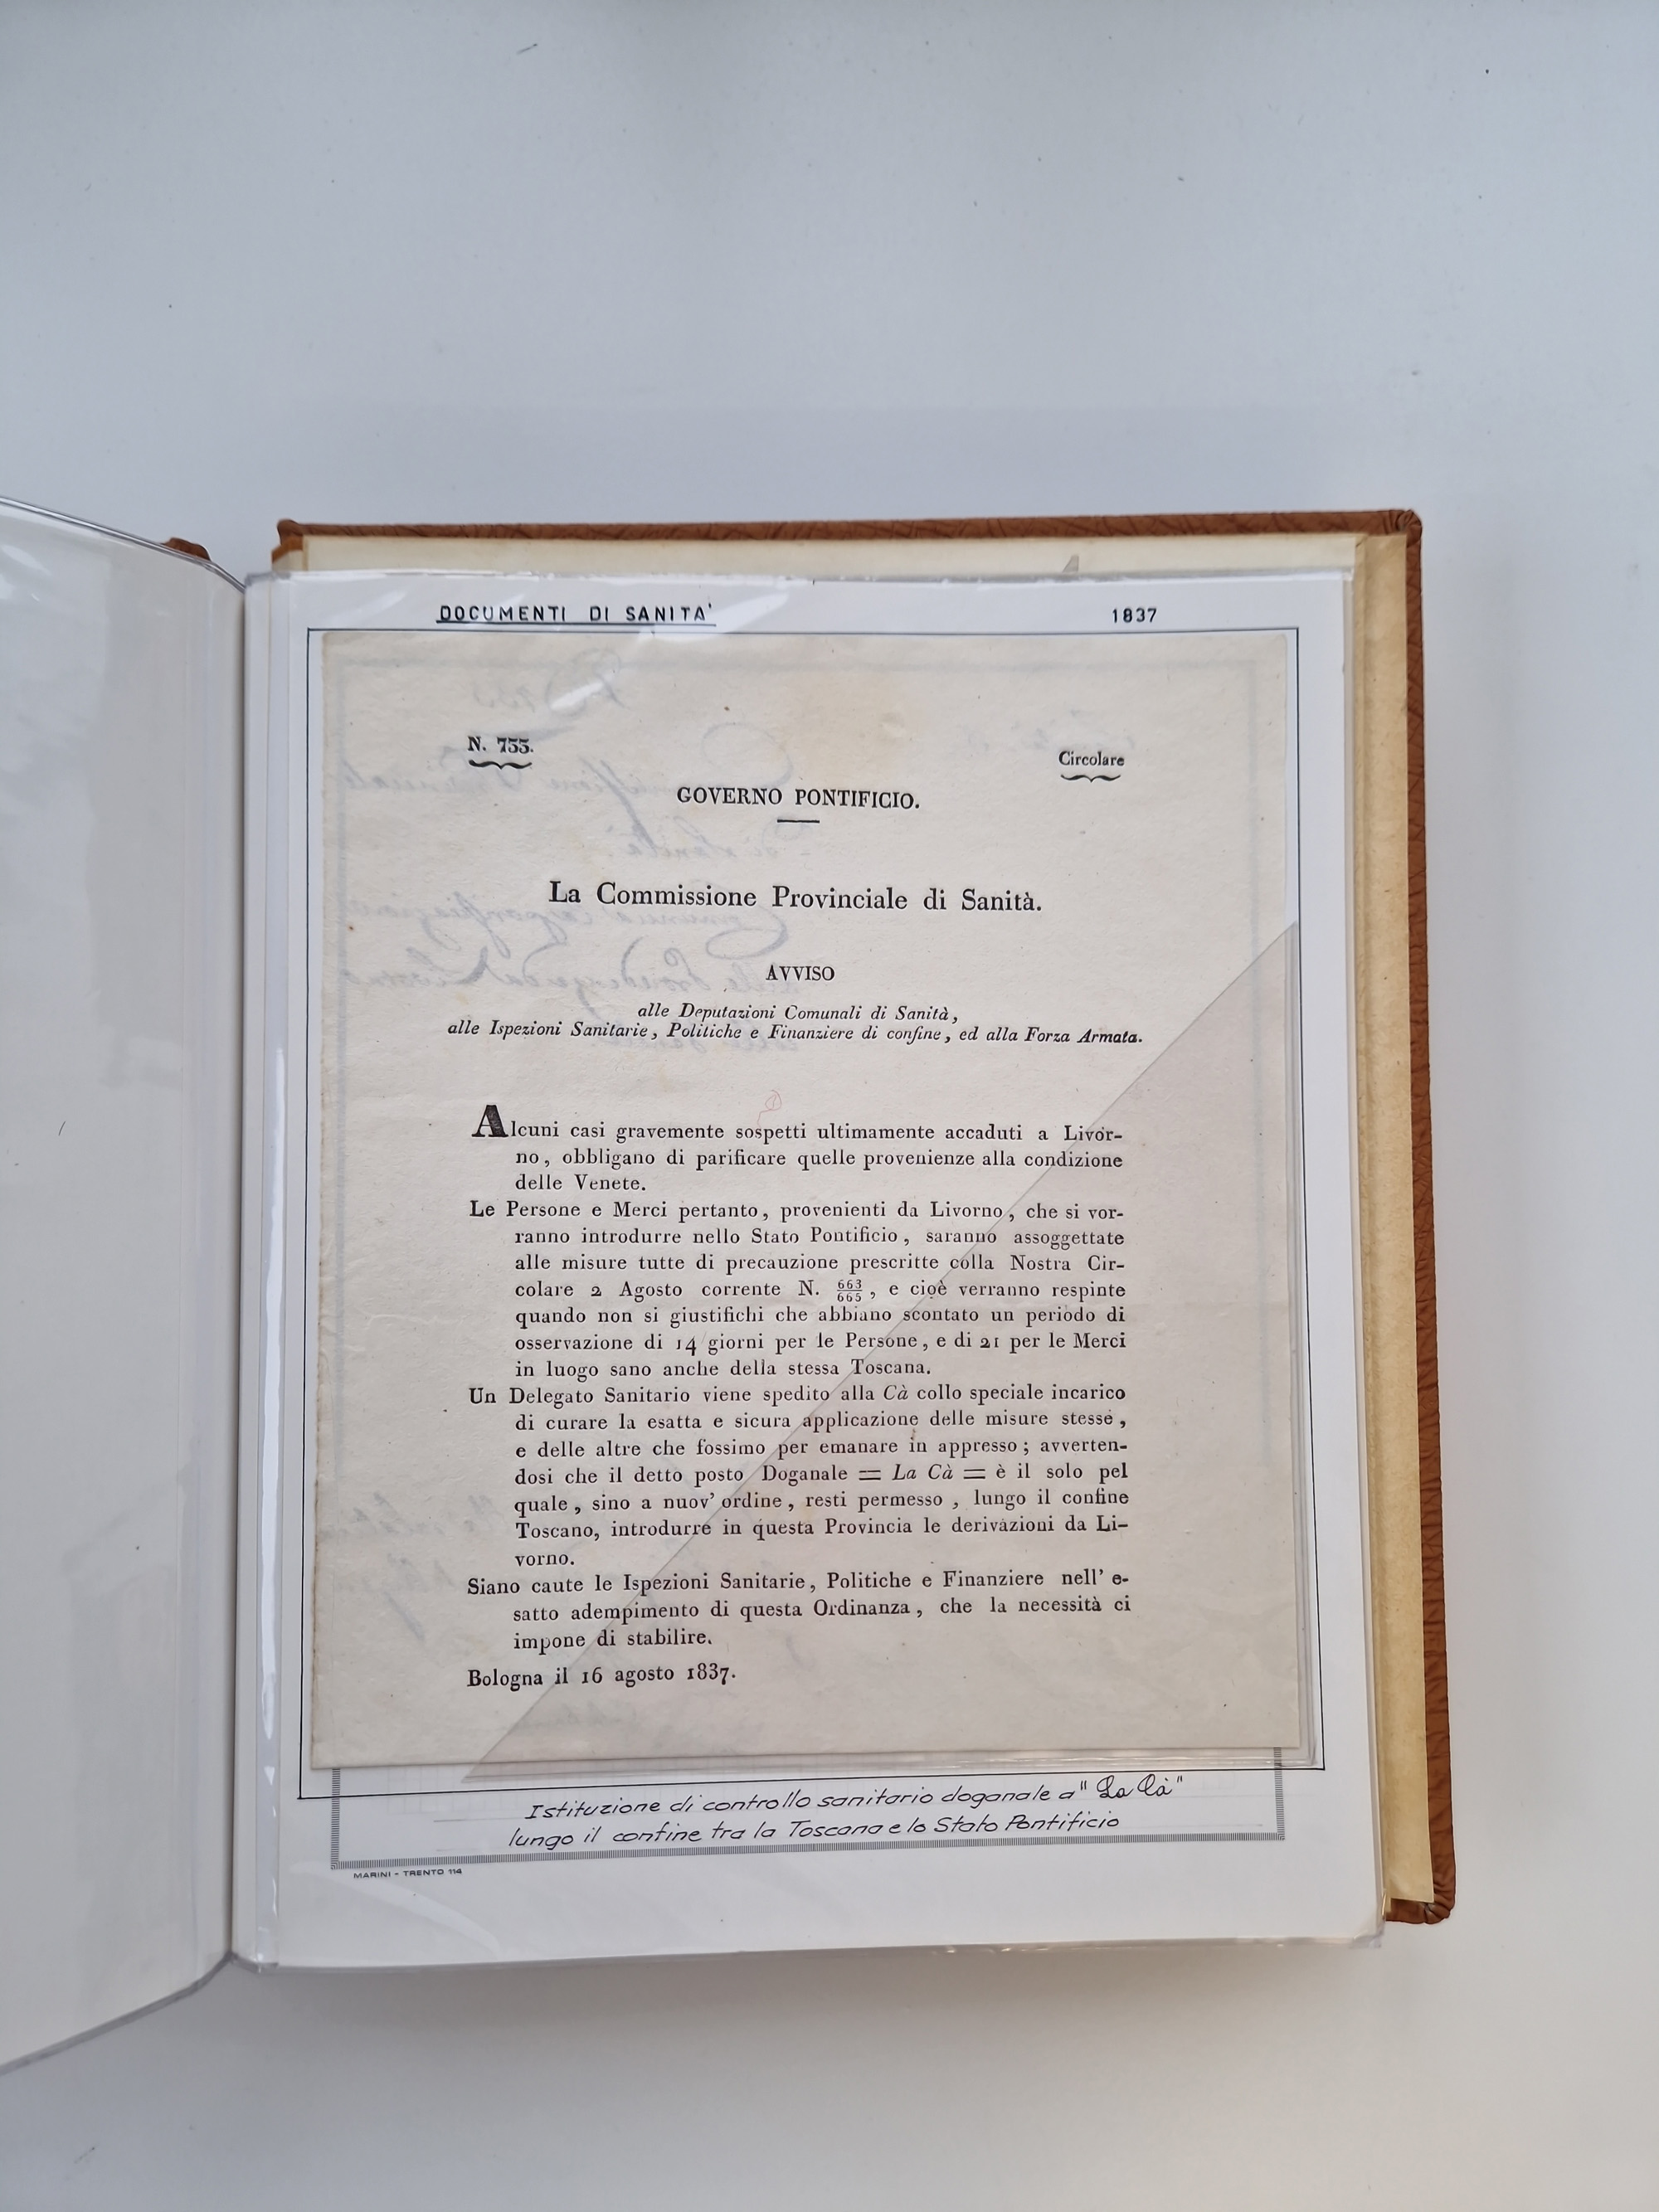 DOCUMENTI DI SANITA' 1837
N. 755. Circolare
GOVERNO PONTIFICIO.
La Commissione Provinciale di Sanità.
AVVISO
alle Deputazioni Comunali di Sanità,
alle Ispezioni Sanitarie, Politiche e Finanziere di confine, ed alla Forza Armata.
Alcuni casi gravemente sospetti ultimamente accaduti a Livor-
no, obbligano di parificare quelle provenienze alla condizione
delle Venete.
Le Persone e Merci pertanto, provenienti da Livorno, che si vor-
ranno introdurre nello Stato Pontificio, saranno assoggettate
alle misure tutte di precauzione prescritte colla Nostra Cir-
colare 2 Agosto corrente N. 663/665, e cioè verranno respinte
quando non si giustifichi che abbiano scontato un periodo di
osservazione di 14 giorni per le Persone, e di 21 per le Merci
in luogo sano anche della stessa Toscana.
Un Delegato Sanitario viene spedito alla Cà collo speciale incarico
di curare la esatta e sicura applicazione delle misure stesse,
e delle altre che fossimo per emanare in appresso; avverten-
dosi che il detto posto Doganale = La Cà = è il solo pel
quale, sino a nuov' ordine, resti permesso, lungo il confine
Toscano, introdurre in questa Provincia le derivazioni da Li-
vorno.
Siano caute le Ispezioni Sanitarie, Politiche e Finanziere nell' e-
satto adempimento di questa Ordinanza, che la necessità ci
impone di stabilire.
Bologna il 16 agosto 1837.
Istituzione di controllo sanitario doganale a "La Cà"
lungo il confine tra la Toscana e lo Stato Pontificio
MARINI - TRENTO 114